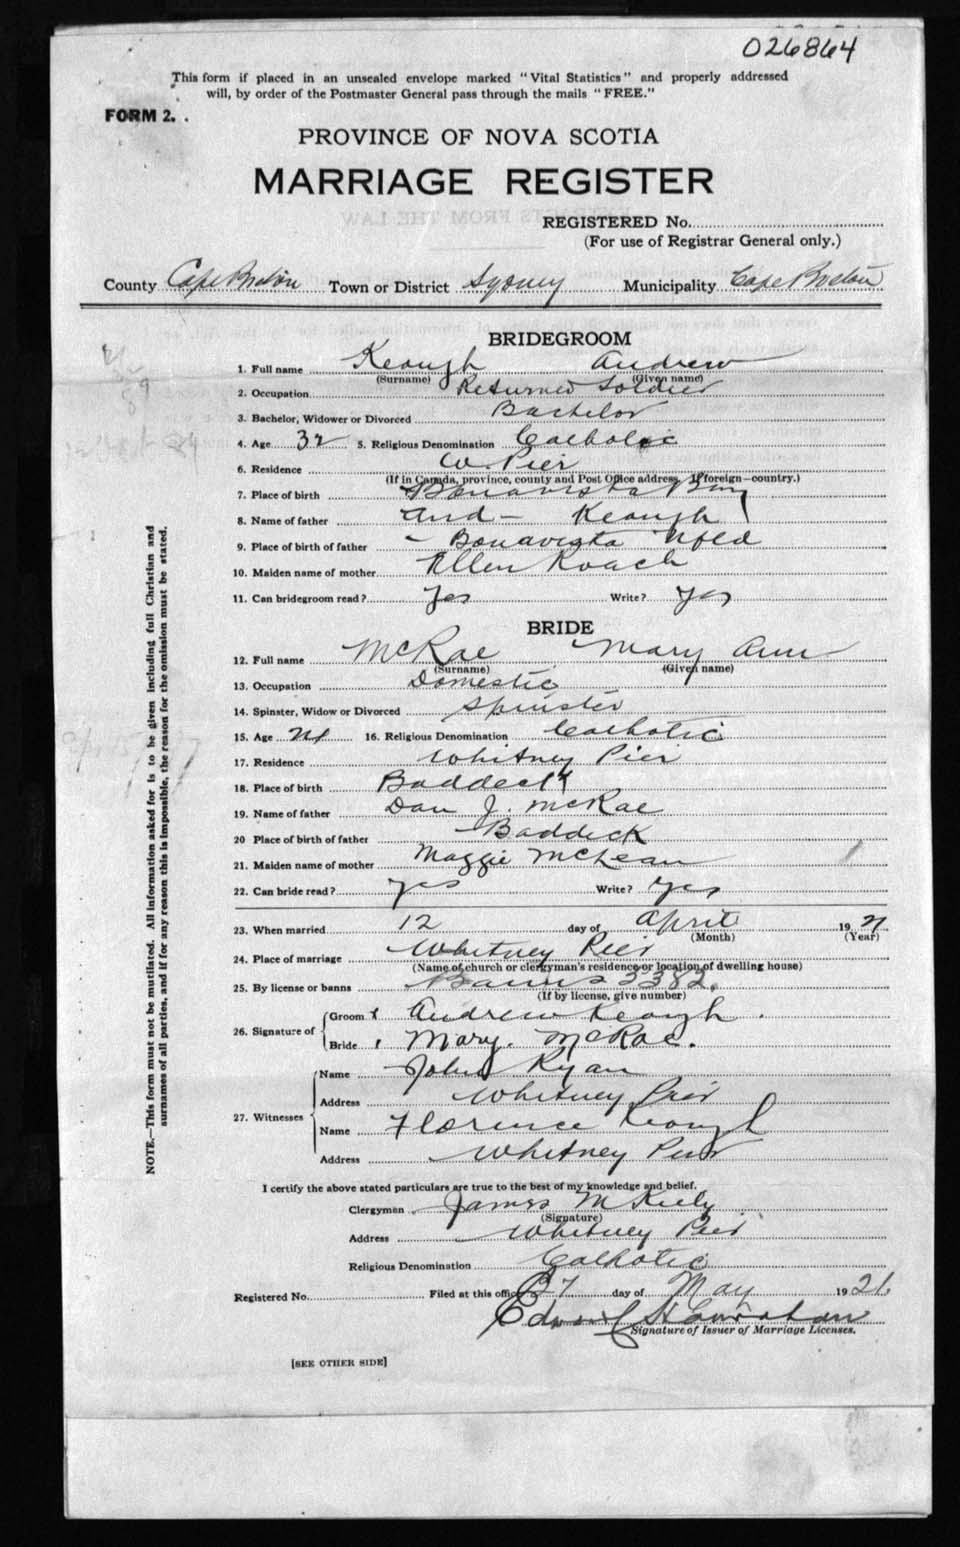 026864
This form if placed in an unsealed envelope marked "Vital Statistics" and properly addressed
will, by order of the Postmaster General pass through the mails "FREE."
FORM 2.
PROVINCE OF NOVA SCOTIA
MARRIAGE REGISTER
REGISTERED No.
(For use of Registrar General only.)
County Cape Breton Town or District Sydney Municipality Cape Breton
BRIDEGROOM
1. Full name Keough Andrew
(Surname) (Given name)
2. Occupation Returned Soldier
3. Bachelor, Widower or Divorced Bachelor
4. Age 32 5. Religious Denomination Catholic
6. Residence W. Pier
(If in Canada, province, county and Post Office address, If foreign—country.)
7. Place of birth Bonavista Bay
8. Name of father And— Keough
9. Place of birth of father Bonavista Nfld
10. Maiden name of mother Ellen Roach
11. Can bridegroom read? Yes Write? Yes
BRIDE
12. Full name McRae Mary Ann
(Surname) (Given name)
13. Occupation Domestic
14. Spinster, Widow or Divorced Spinster
15. Age 16. Religious Denomination Catholic
17. Residence Whitney Pier
18. Place of birth Baddeck
19. Name of father Dan J. McRae
20 Place of birth of father Baddeck
21. Maiden name of mother Maggie McLean
22. Can bride read? Yes Write? Yes
23. When married 12 day of April 1921
(Month) (Year)
24. Place of marriage Whitney Pier
(Name of church or clergyman's residence or location of dwelling house)
25. By license or banns Banns 3382.
(If by license, give number)
26. Signature of
Groom Andrew Keough.
Bride Mary. McRae.
27. Witnesses
Name John Ryan
Address Whitney Pier
Name Florence Keough
Address Whitney Pier
I certify the above stated particulars are true to the best of my knowledge and belief.
Clergyman James M Kiely
(Signature)
Address Whitney Pier
Religious Denomination Catholic
Registered No. Filed at this office 27 day of May 1921.
Signature of Issuer of Marriage Licenses.
[SEE OTHER SIDE]
NOTE.—This form must not be mutilated. All information asked for is to be given including full Christian and
surnames of all parties, and if for any reason this is impossible, the reason for the omission must be stated.